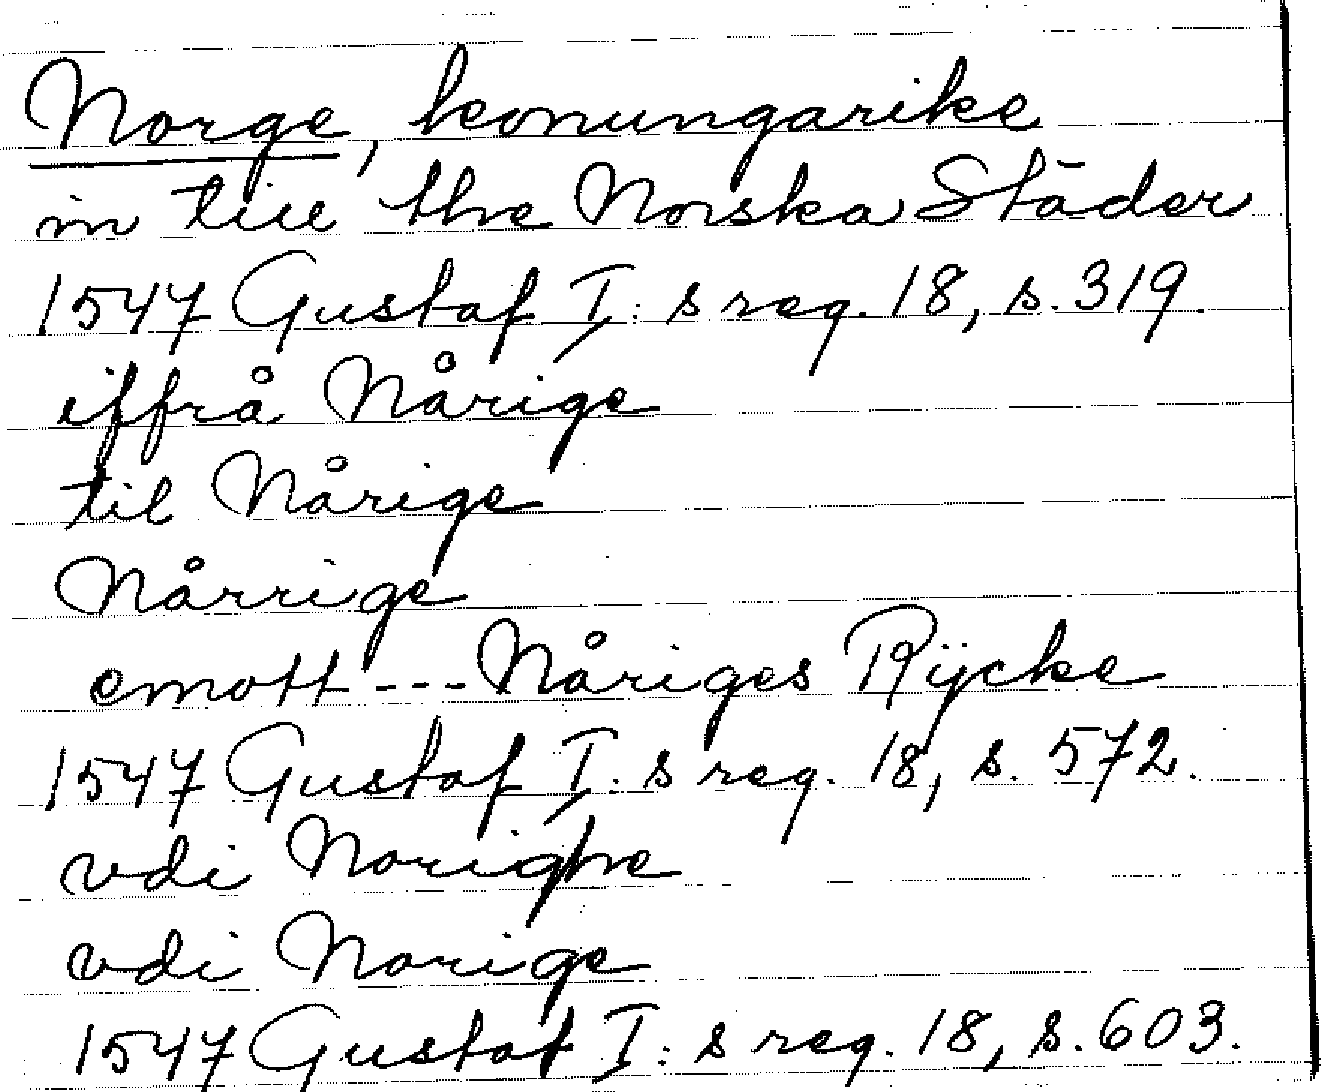 Norge, konungarike
in till the Norska Städer
1547 Gustaf I:s reg. 18, s. 319
iffrå Nårige
til Nårige
Nårrige
emott --- Nåriges Rÿcke
1547 Gustaf I:s reg. 18, s. 572.
vdi Norighe
vdi Norige
1547 Gustaf I:s reg. 18, s. 603.